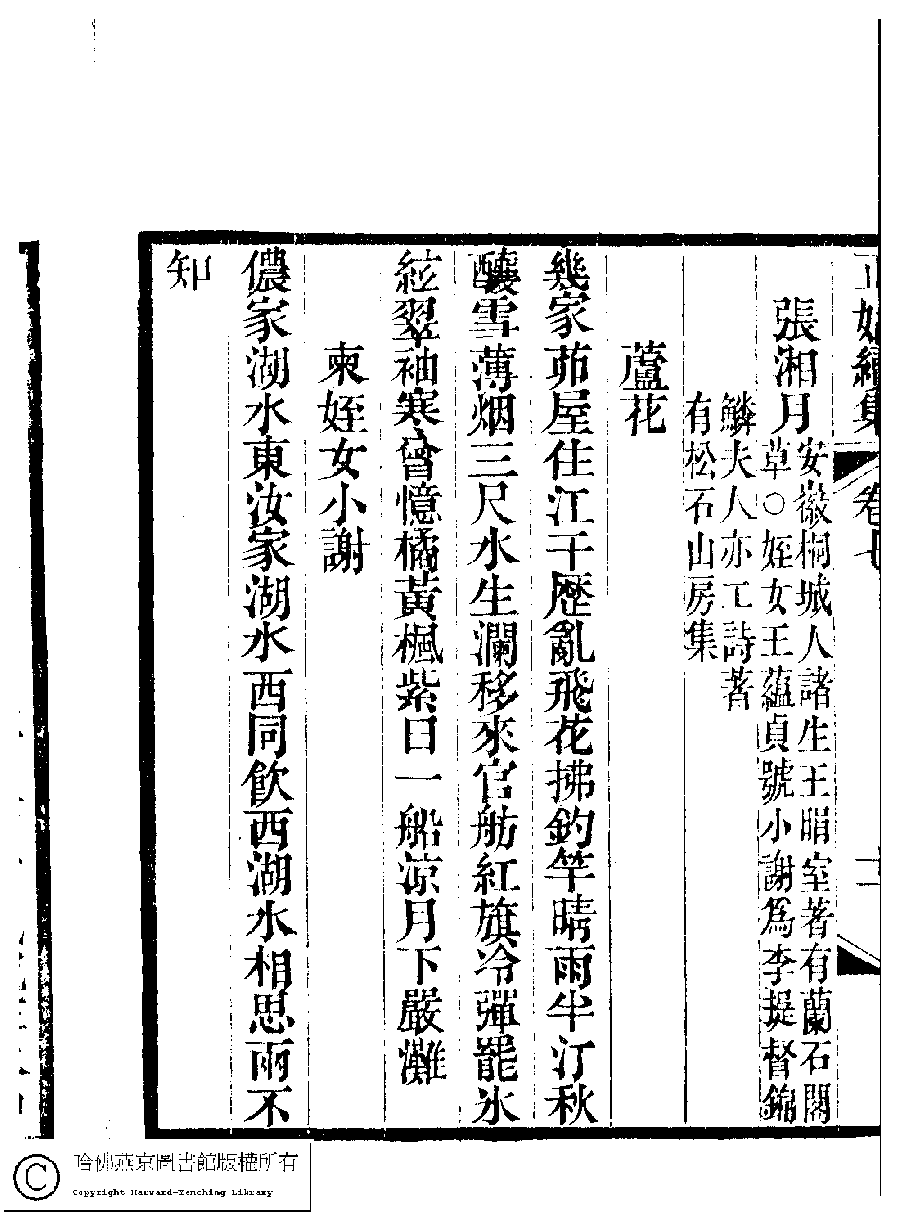 正始續集 卷七 二
張湘月
安徽桐城人諸生王眉室著有蘭石閣
草○姪女王蘊貞號小謝爲李提督錦
鱗夫人亦工詩著
有松石山房集
蘆花
幾家茆屋住江干歷亂飛花拂釣竿晴雨半汀秋
釀雪薄烟三尺水生瀾移來官舫紅旗冷彈罷冰
絃翠袖寒曾憶橘黃楓紫日一船涼月下嚴灘
柬姪女小謝
儂家湖水東汝家湖水西同飮西湖水相思兩不
知
哈佛燕京圖書館版權所有
Copyright Harvard-Yenching Library